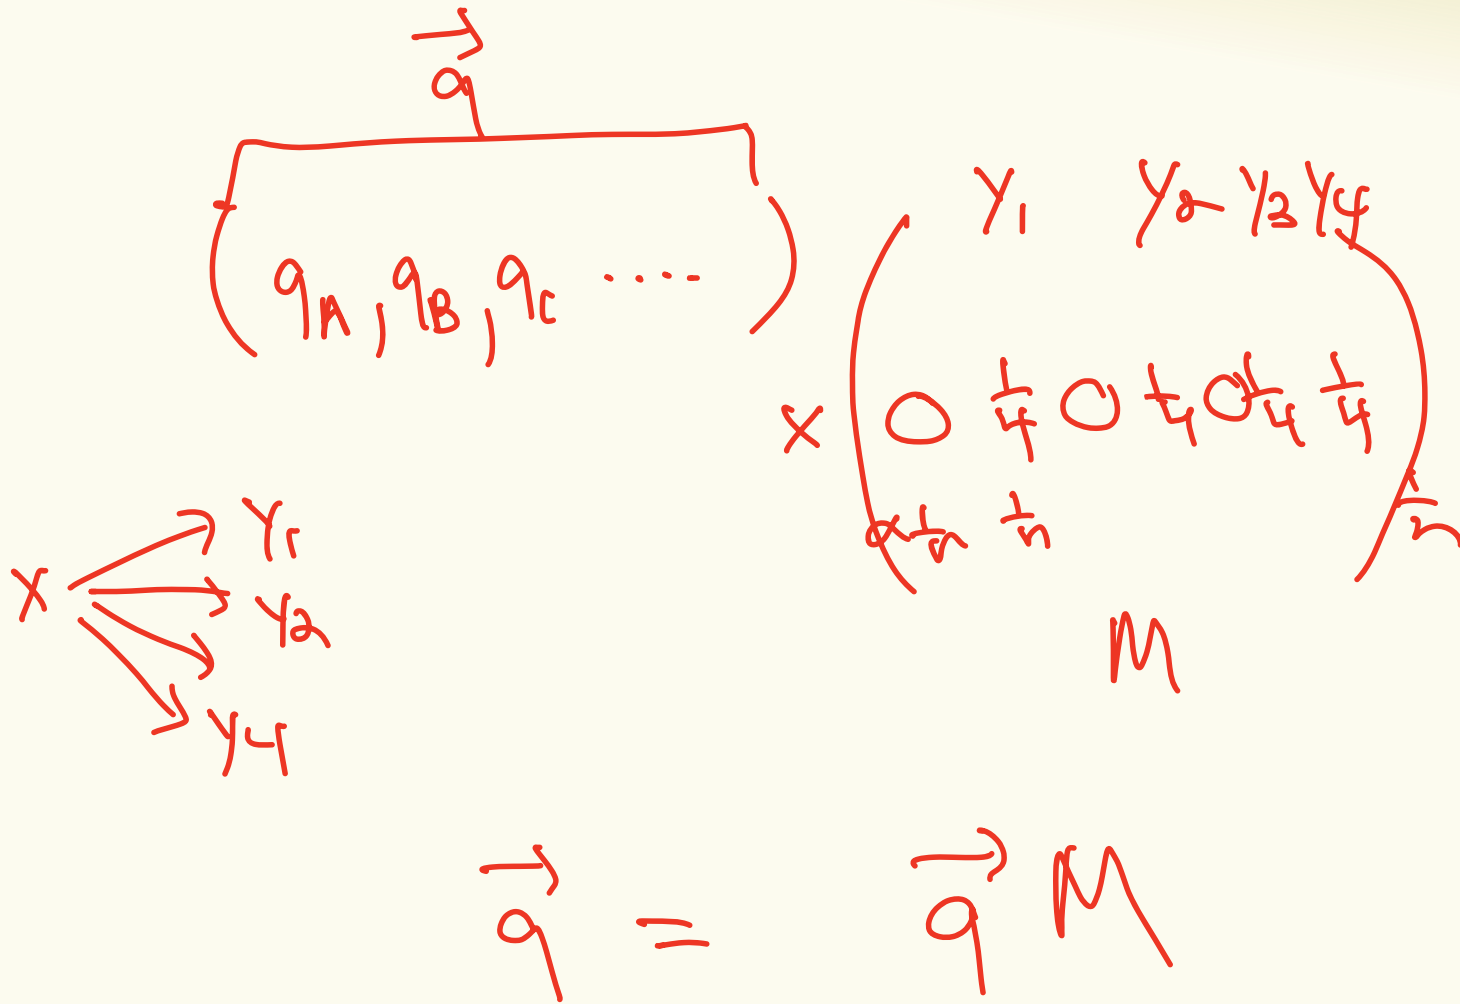 q
( q_A , q_B , q_C .... )
Y_1 Y_2 Y_3 Y_4
X ( 0 1/4 0 1/4 0 1/4 1/4 )
1/n 1/n 1/n
M
X Y_1
Y_2
Y_4
q = q M